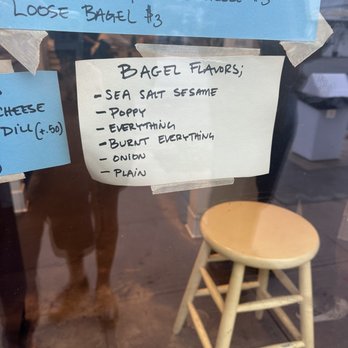 LOOSE BAGEL $3
CHEESE
DILL (+.50)
BAGEL FLAVORS;
- SEA SALT SESAME
- POPPY
- EVERYTHING
- BURNT EVERYTHING
- ONION
- PLAIN